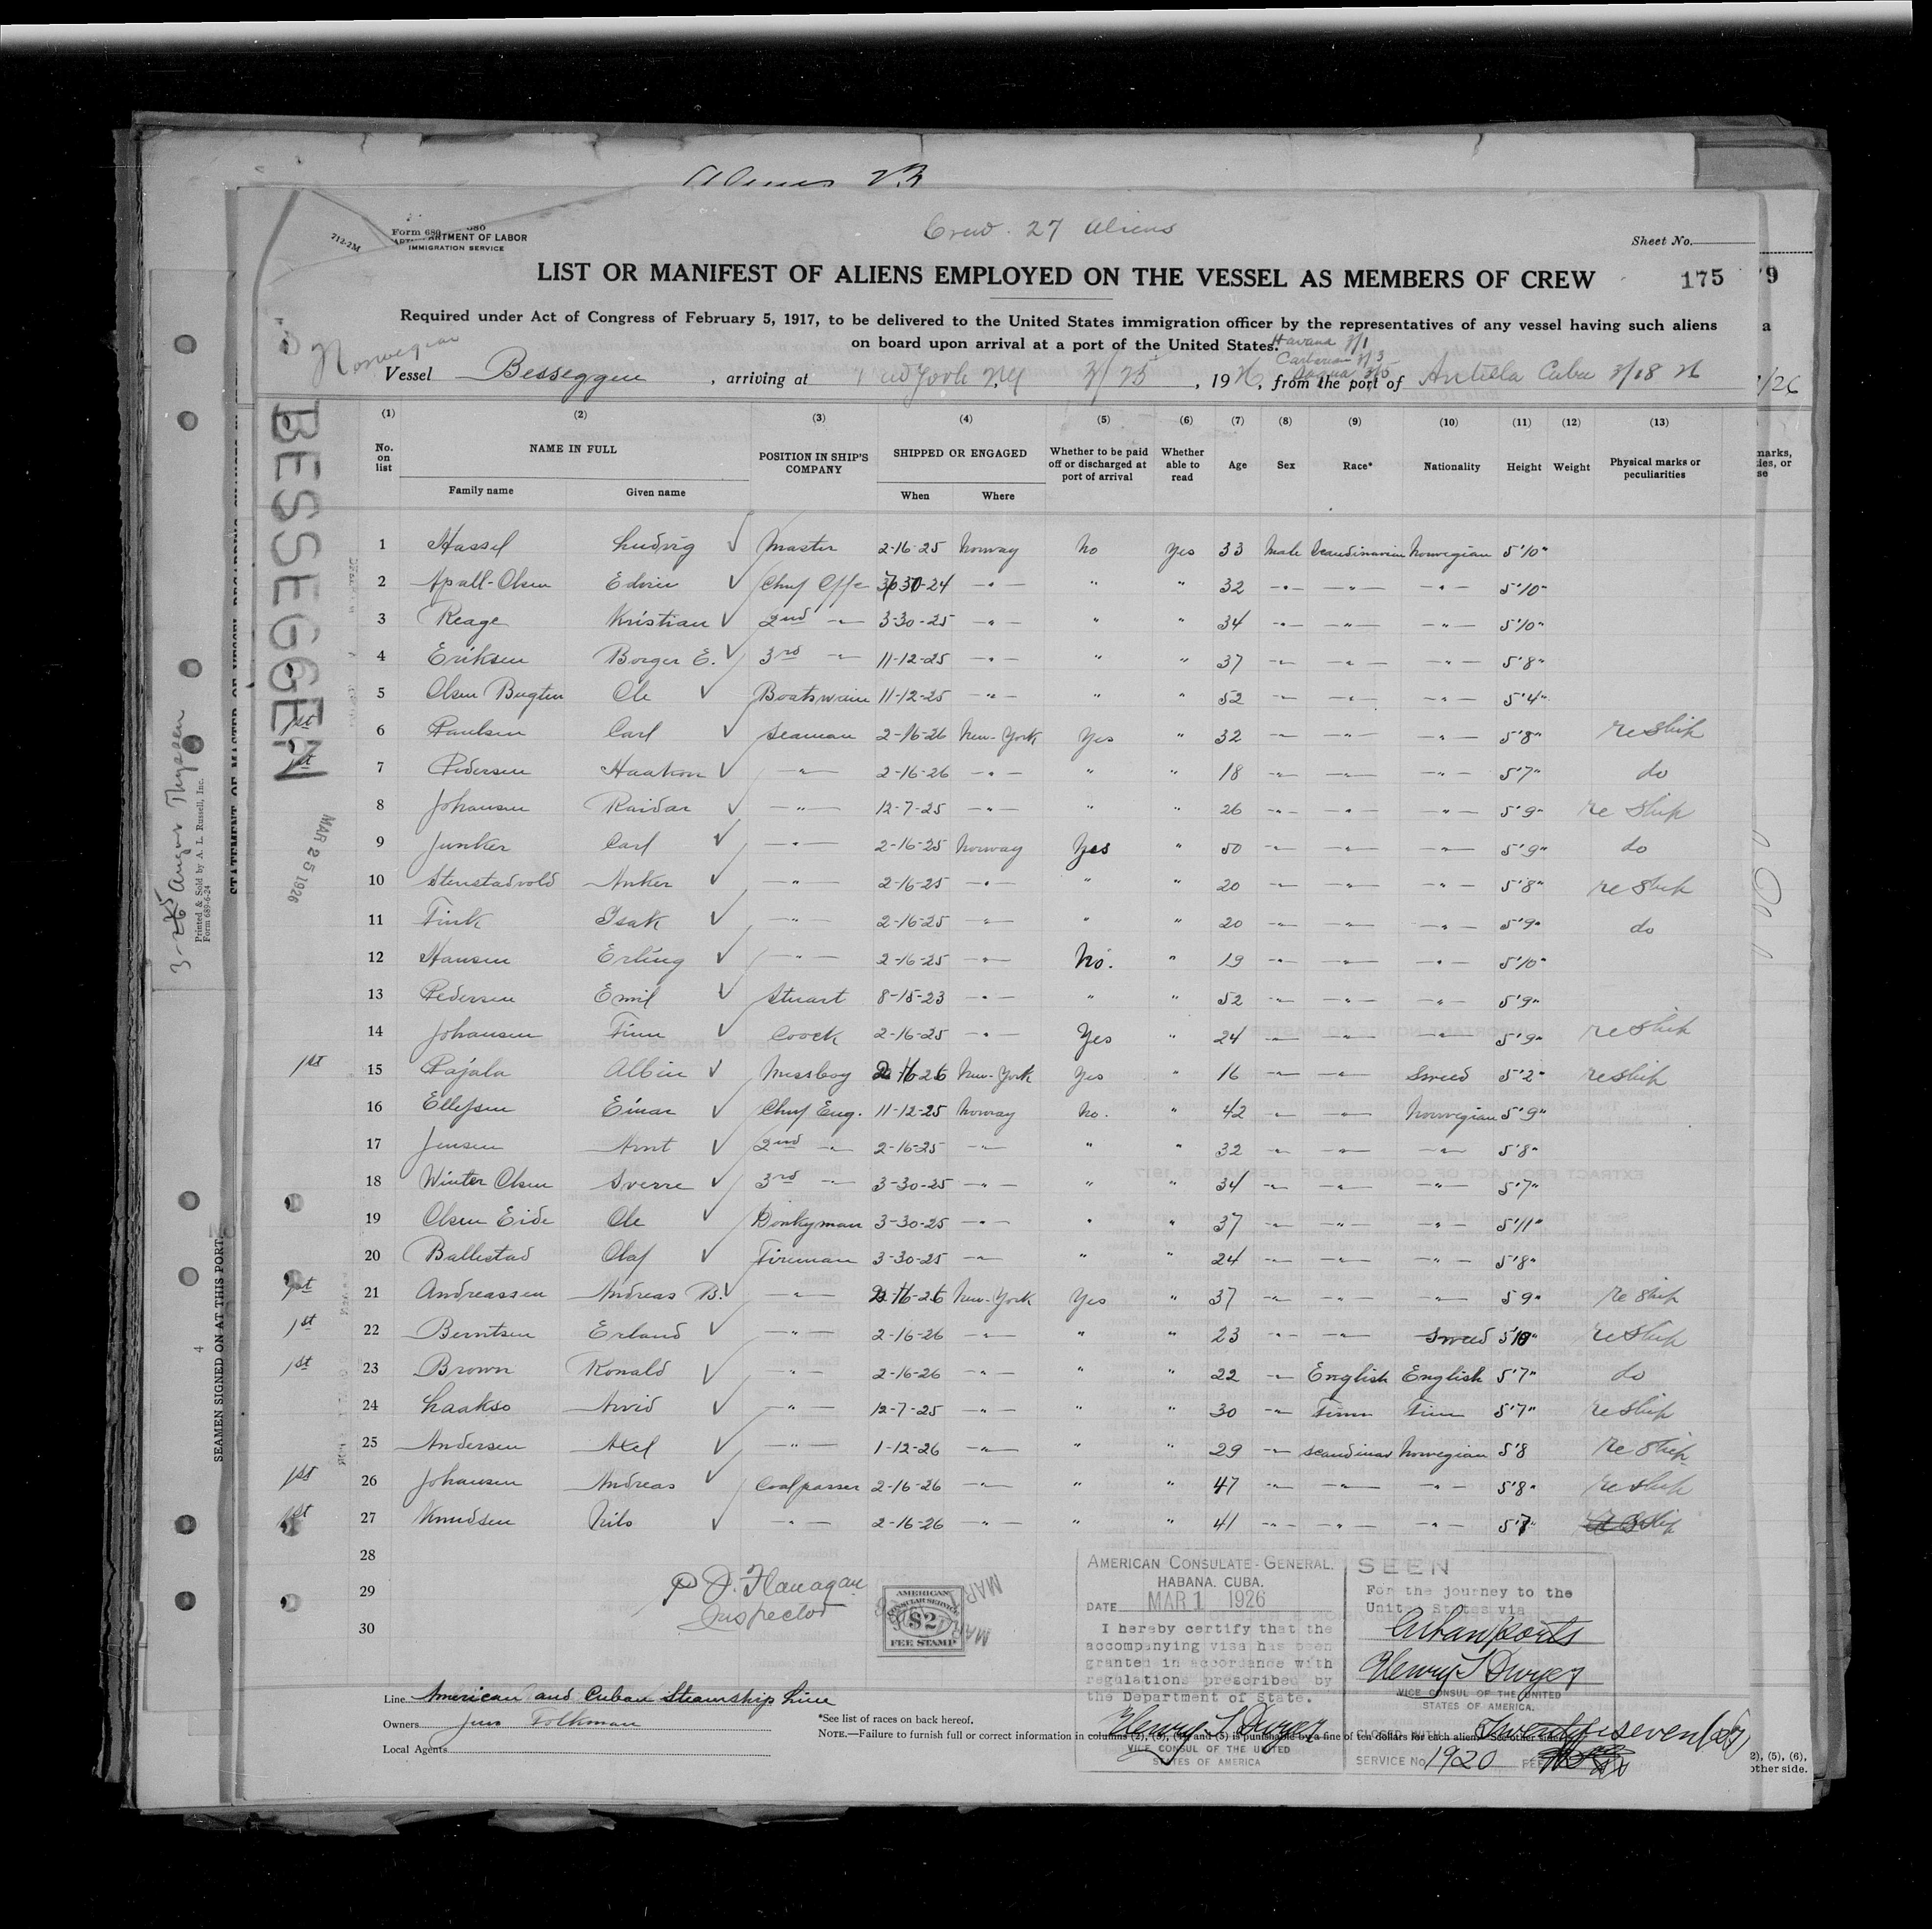 Crew. 27 Aliens
Form 680
DEPARTMENT OF LABOR
IMMIGRATION SERVICE
Sheet No.
LIST OR MANIFEST OF ALIENS EMPLOYED ON THE VESSEL AS MEMBERS OF CREW
175
Required under Act of Congress of February 5, 1917, to be delivered to the United States immigration officer by the representatives of any vessel having such aliens
on board upon arrival at a port of the United States.
Havana 3/1
Norwegian
Vessel Besseggen, arriving at New York NY 3/25, 1926, from the port of Antilla Cuba 3/18 26
(1) (2) (3) (4) (5) (6) (7) (8) (9) (10) (11) (12) (13)
No. on list NAME IN FULL Family name Given name POSITION IN SHIP'S COMPANY SHIPPED OR ENGAGED When Where Whether to be paid off or discharged at port of arrival Whether able to read Age Sex Race* Nationality Height Weight Physical marks or peculiarities
1 Hassel Ludvig Master 2-16-25 Norway No Yes 33 Male Scandinavian Norwegian 5'10"
2 Apall-Olsen Edvin Chief Offc 30-24 -"- " " 32 -"- -"- -"- 5'10"
3 Reage Kristian 2nd -"- 3-30-25 -"- " " 34 -"- -"- -"- 5'10"
4 Eriksen Borger E. 3rd -"- 11-12-25 -"- " " 37 -"- -"- -"- 5'8"
5 Olsen Bugten Ole Boatswain 11-12-25 -"- " " 52 -"- -"- -"- 5'4"
1st 6 Paulsen Carl Seaman 2-16-26 New-York Yes " 32 -"- -"- -"- 5'8" reship
1st 7 Pedersen Haakon -"- 2-16-26 -"- " " 18 -"- -"- -"- 5'7" do
8 Johansen Raidar -"- 12-7-25 -"- " " 26 -"- -"- -"- 5'9" re ship
9 Junker Carl -"- 2-16-25 Norway Yes " 50 -"- -"- -"- 5'9" do
10 Stenstadvold Anker -"- 2-16-25 -"- " " 20 -"- -"- -"- 5'8" re ship
11 Fink Isak -"- 2-16-25 -"- " " 20 -"- -"- -"- 5'9" do
12 Hansen Erling -"- 2-16-25 -"- No. " 19 -"- -"- -"- 5'10"
13 Pedersen Emil Stuart 8-15-23 -"- " " 52 -"- -"- -"- 5'9"
14 Johansen Finn Coock 2-16-25 -"- Yes " 24 -"- -"- -"- 5'9" reship
1st 15 Pajala Albin Messboy 2-16-26 New-York Yes " 16 -"- -"- Sweed 5'2" reship
16 Ellefsen Einar Chief Eng. 11-12-25 Norway No. " 42 -"- -"- Norwegian 5'9"
17 Jensen Arnt 2nd -"- 2-16-25 -"- " " 32 -"- -"- -"- 5'8"
18 Winter Olsen Sverre 3rd -"- 3-30-25 -"- " " 34 -"- -"- -"- 5'7"
19 Olsen Eide Ole Donkyman 3-30-25 -"- " " 37 -"- -"- -"- 5'11"
20 Ballestad Olaf Fireman 3-30-25 -"- " " 24 -"- -"- -"- 5'8"
1st 21 Andreassen Andreas B. -"- 2-16-26 New-York Yes " 37 -"- -"- -"- 5 9" re ship
1st 22 Berntsen Erland -"- 2-16-26 -"- " " 23 -"- -"- Sweed 5'10" reship
1st 23 Brown Ronald -"- 2-16-26 -"- " " 22 -"- English English 5'7" do
24 Laakso Arvid -"- 12-7-25 -"- " " 30 -"- Finn Finn 5'7" reship
25 Andersen Axel -"- 1-12-26 -"- " " 29 -"- Scandinav Norwegian 5'8 re ship
1st 26 Johansen Andreas Coalpasser 2-16-26 -"- " " 47 -"- -"- -"- 5'8" reship
1st 27 Knudsen Nils -"- 2-16-26 -"- " " 41 -"- -"- -"- 5'7" reship
28
29
30
P J. Flanagan
Inspector
AMERICAN
CONSULAR SERVICE
$2
FEE STAMP
AMERICAN CONSULATE-GENERAL.
HABANA. CUBA.
DATE MAR 1 1926
I hereby certify that the
accompanying visa has been
granted in accordance with
regulations prescribed by
the Department of State.
Henry T Dwyer
VICE CONSUL OF THE UNITED
STATES OF AMERICA
SEEN
For the journey to the
United States via
Cuban ports
Henry T Dwyer
VICE CONSUL OF THE UNITED
STATES OF AMERICA.
CLOSED WITH Twenty seven (27)
SERVICE No. 1920 FEE
Line American and Cuban Steamship Line
Owners Jens Folkman
Local Agents
*See list of races on back hereof.
NOTE.—Failure to furnish full or correct information in columns (2), (3), (4) and (5) is punishable by a fine of ten dollars for each alien. See other side.
BESSEGGEN
MAR 25 1926
Printed & Sold by A. L. Russell, Inc.
Form 689-6-24
SEAMEN SIGNED ON AT THIS PORT
4
2), (5), (6),
other side.